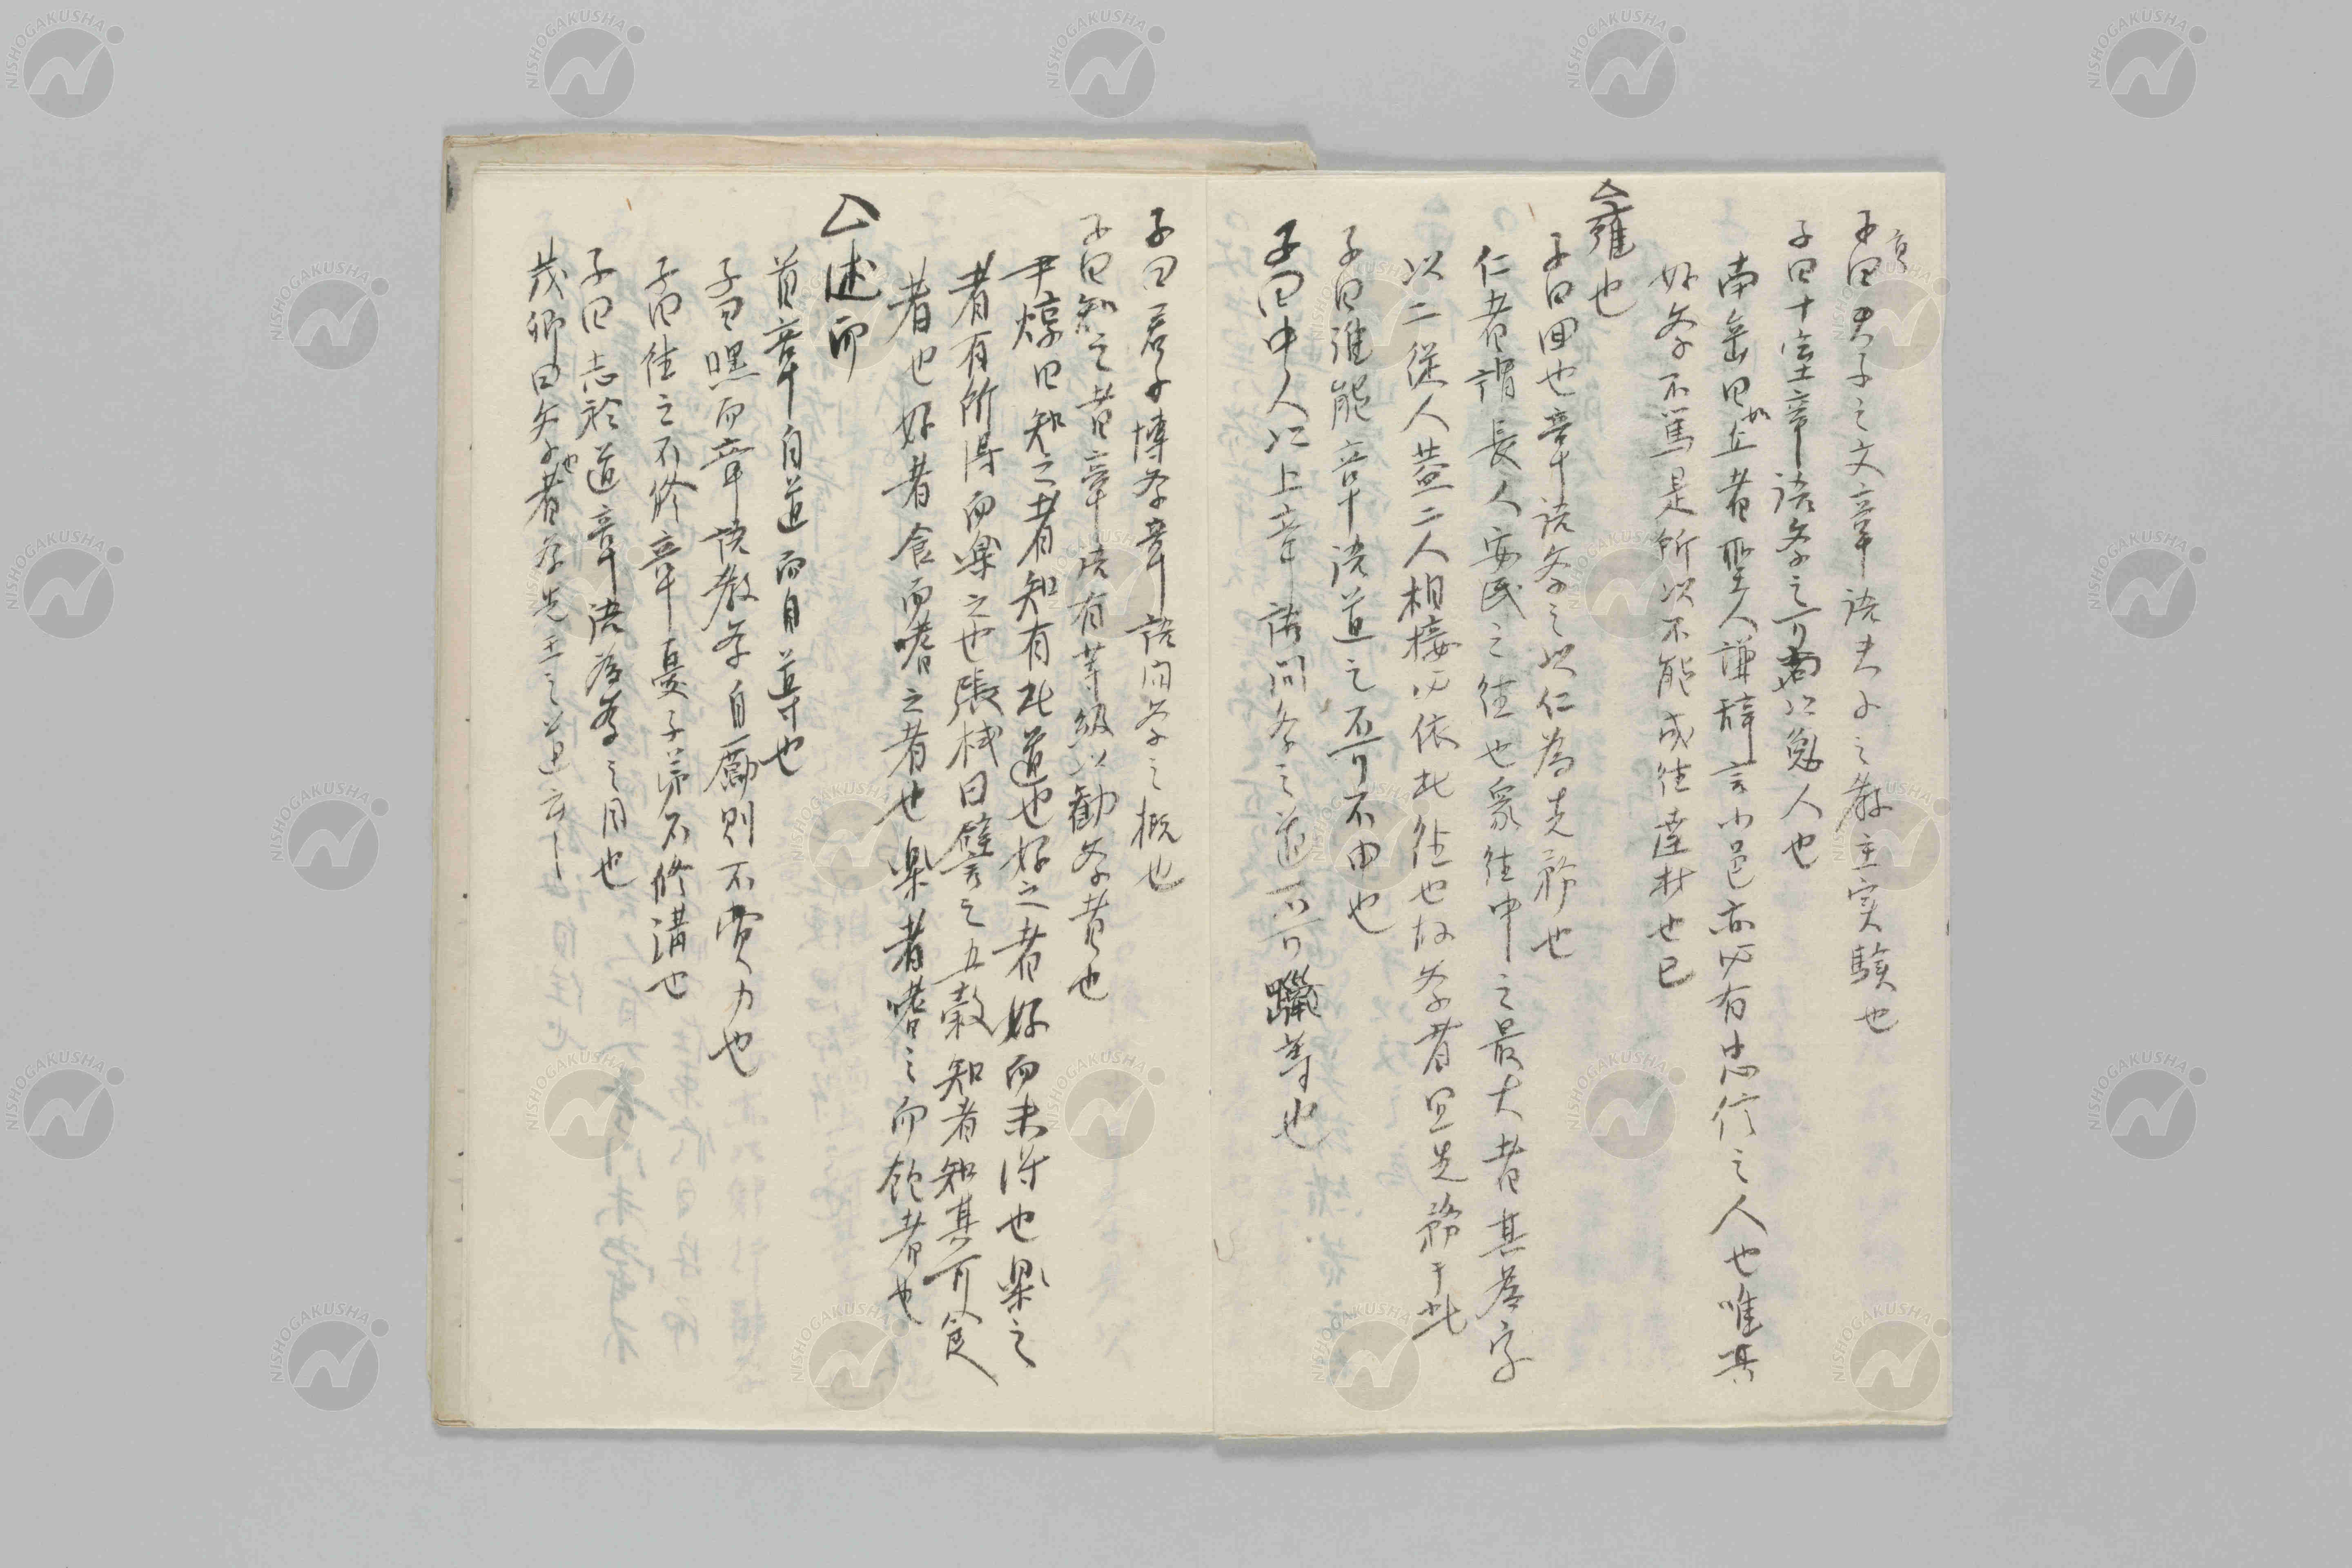 子貢曰夫子之文章語夫子之教主実験也
子曰十室章語学之可尚以勉人也
南岳曰如丘者聖人謙辞言小邑亦必有忠信之人也唯其
好学不篤是所以不能成徳達材也已
△雍也
子曰回也章語学之以仁為先務也
仁者謂長人安民之徳也衆徳中之最大者其為字
以二従人蓋二人相接必依此徳也故学者宜先務于此
子曰誰能章語道之不可不由也
子曰中人以上章語問学之道不可躐等也
子曰君子博学章語問学之概也
子曰知之者章語有等級以勧学者也
尹焞曰知之者知有此道也好之者好而未得也楽之
者有所得而楽之也張栻曰譬之五穀知者知其可食
者也好者食而嗜之者也楽者嗜之而飽者也
△述而
首章自道而自尊也
子曰黙而章語教学自励則不費力也
子曰徳之不脩章憂子弟不修講也
子曰志於道章語為学之用也
茂卿曰矢也者学先王之道云々
NISHOGAKUSHA